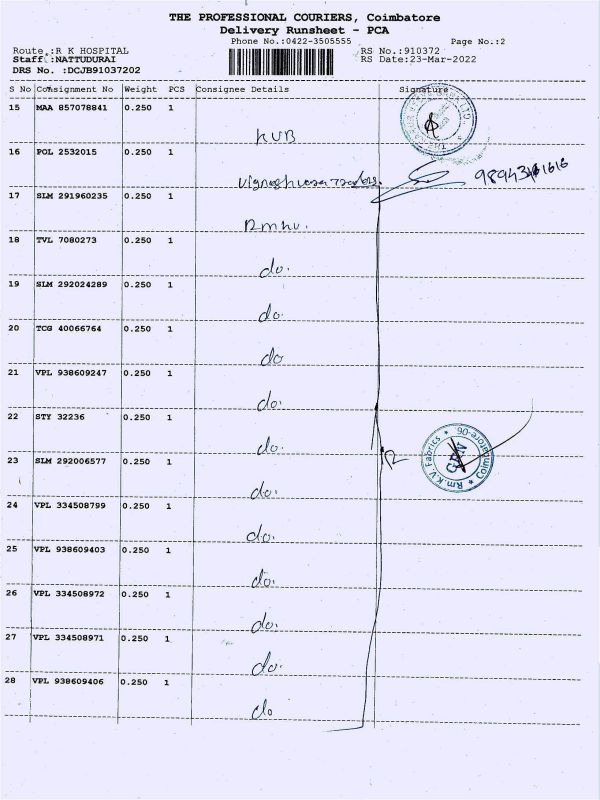 THE PROFESSIONAL COURIERS, Coimbatore
Delivery Runsheet - PCA
Phone No.:0422-3505555 Page No.:2
Route :R K HOSPITAL RS No.:910372
Staff :NATTUDURAI RS Date:23-Mar-2022
DRS No. :DCJB91037202
S No Consignment No Weight PCS Consignee Details Signature
15 MAA 857078841 0.250 1
KVB
16 POL 2532015 0.250 1
17 SLM 291960235 0.250 1
18 TVL 7080273 0.250 1
do.
19 SLM 292024289 0.250 1
do.
20 TCG 40066764 0.250 1
do
21 VPL 938609247 0.250 1
do.
22 STY 32236 0.250 1
do.
Rm.K.V. Fabrics * Coimbatore-06
23 SLM 292006577 0.250 1
do.
24 VPL 334508799 0.250 1
do.
25 VPL 938609403 0.250 1
do.
26 VPL 334508972 0.250 1
do.
27 VPL 334508971 0.250 1
do.
28 VPL 938609406 0.250 1
do